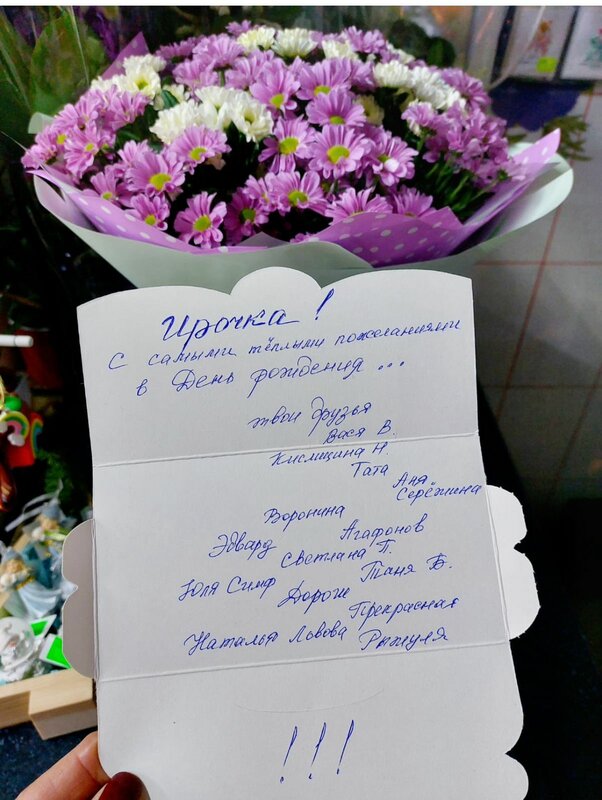 Ирочка!
С самыми тёплыми пожеланиями
в День рождения...
твои друзья
Вася В.
Кислицина Н.
Тата
Аня
Серёжина
Воронина
Агафонов
Эдвард
Светлана П.
Таня Б.
Юля Симф
Дорош
Прекрасная
Наталья Львова Рыжуля
!!!